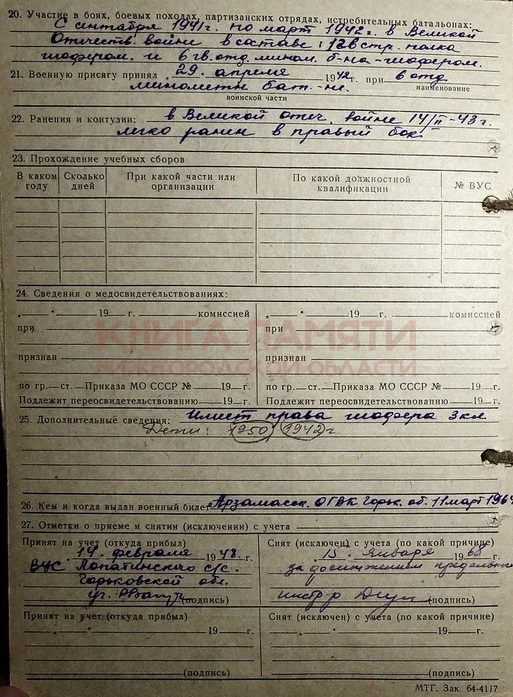 20. Участие в боях, боевых походах, партизанских отрядах, истребительных батальонах:
С сентября 1941г. по март 1942г. в Великой
Отечеств. войне в составе: 128 стр. полка
шофером. и 6 гв. отд. мином. б-на - шофером.
21. Военную присягу принял 29 апреля 1942 г. при 6 отд.
наименование
минометн бат-не.
воинской части
22. Ранения и контузии: в Великой отеч. войне 14/II-43г.
легко ранен в правый бок
23. Прохождение учебных сборов
В каком году | Сколько дней | При какой части или организации | По какой должностной квалификации | № ВУС
24. Сведения о медосвидетельствованиях:
„ " 19 г. комиссией | „ " 19 г. комиссией
при | при
КНИГА ПАМЯТИ
признан | признан
по гр. ст. Приказа МО СССР № 19 г. | по гр. ст. Приказа МО СССР № 19 г.
Подлежит переосвидетельствованию 19 г. | Подлежит переосвидетельствованию 19 г.
25. Дополнительные сведения: Имеет права шофера 3 кл
Дети: 1950, 1942 г
26. Кем и когда выдан военный билет Арзамасск. ОГВК Горьк. об. 11 март 1964
27. Отметки о приеме и снятии (исключении) с учета
Принят на учет (откуда прибыл) | Снят (исключен) с учета (по какой причине)
14 февраля 1948 г. | 15 января 1968 г.
ВУС Лопатинского с/с. | за достижением предельного
Горьковской обл.
(подпись) | (подпись)
Принят на учет (откуда прибыл) | Снят (исключен) с учета (по какой причине)
19 г. | 19 г.
(подпись) | (подпись)
МТГ. Зак. 64-4117